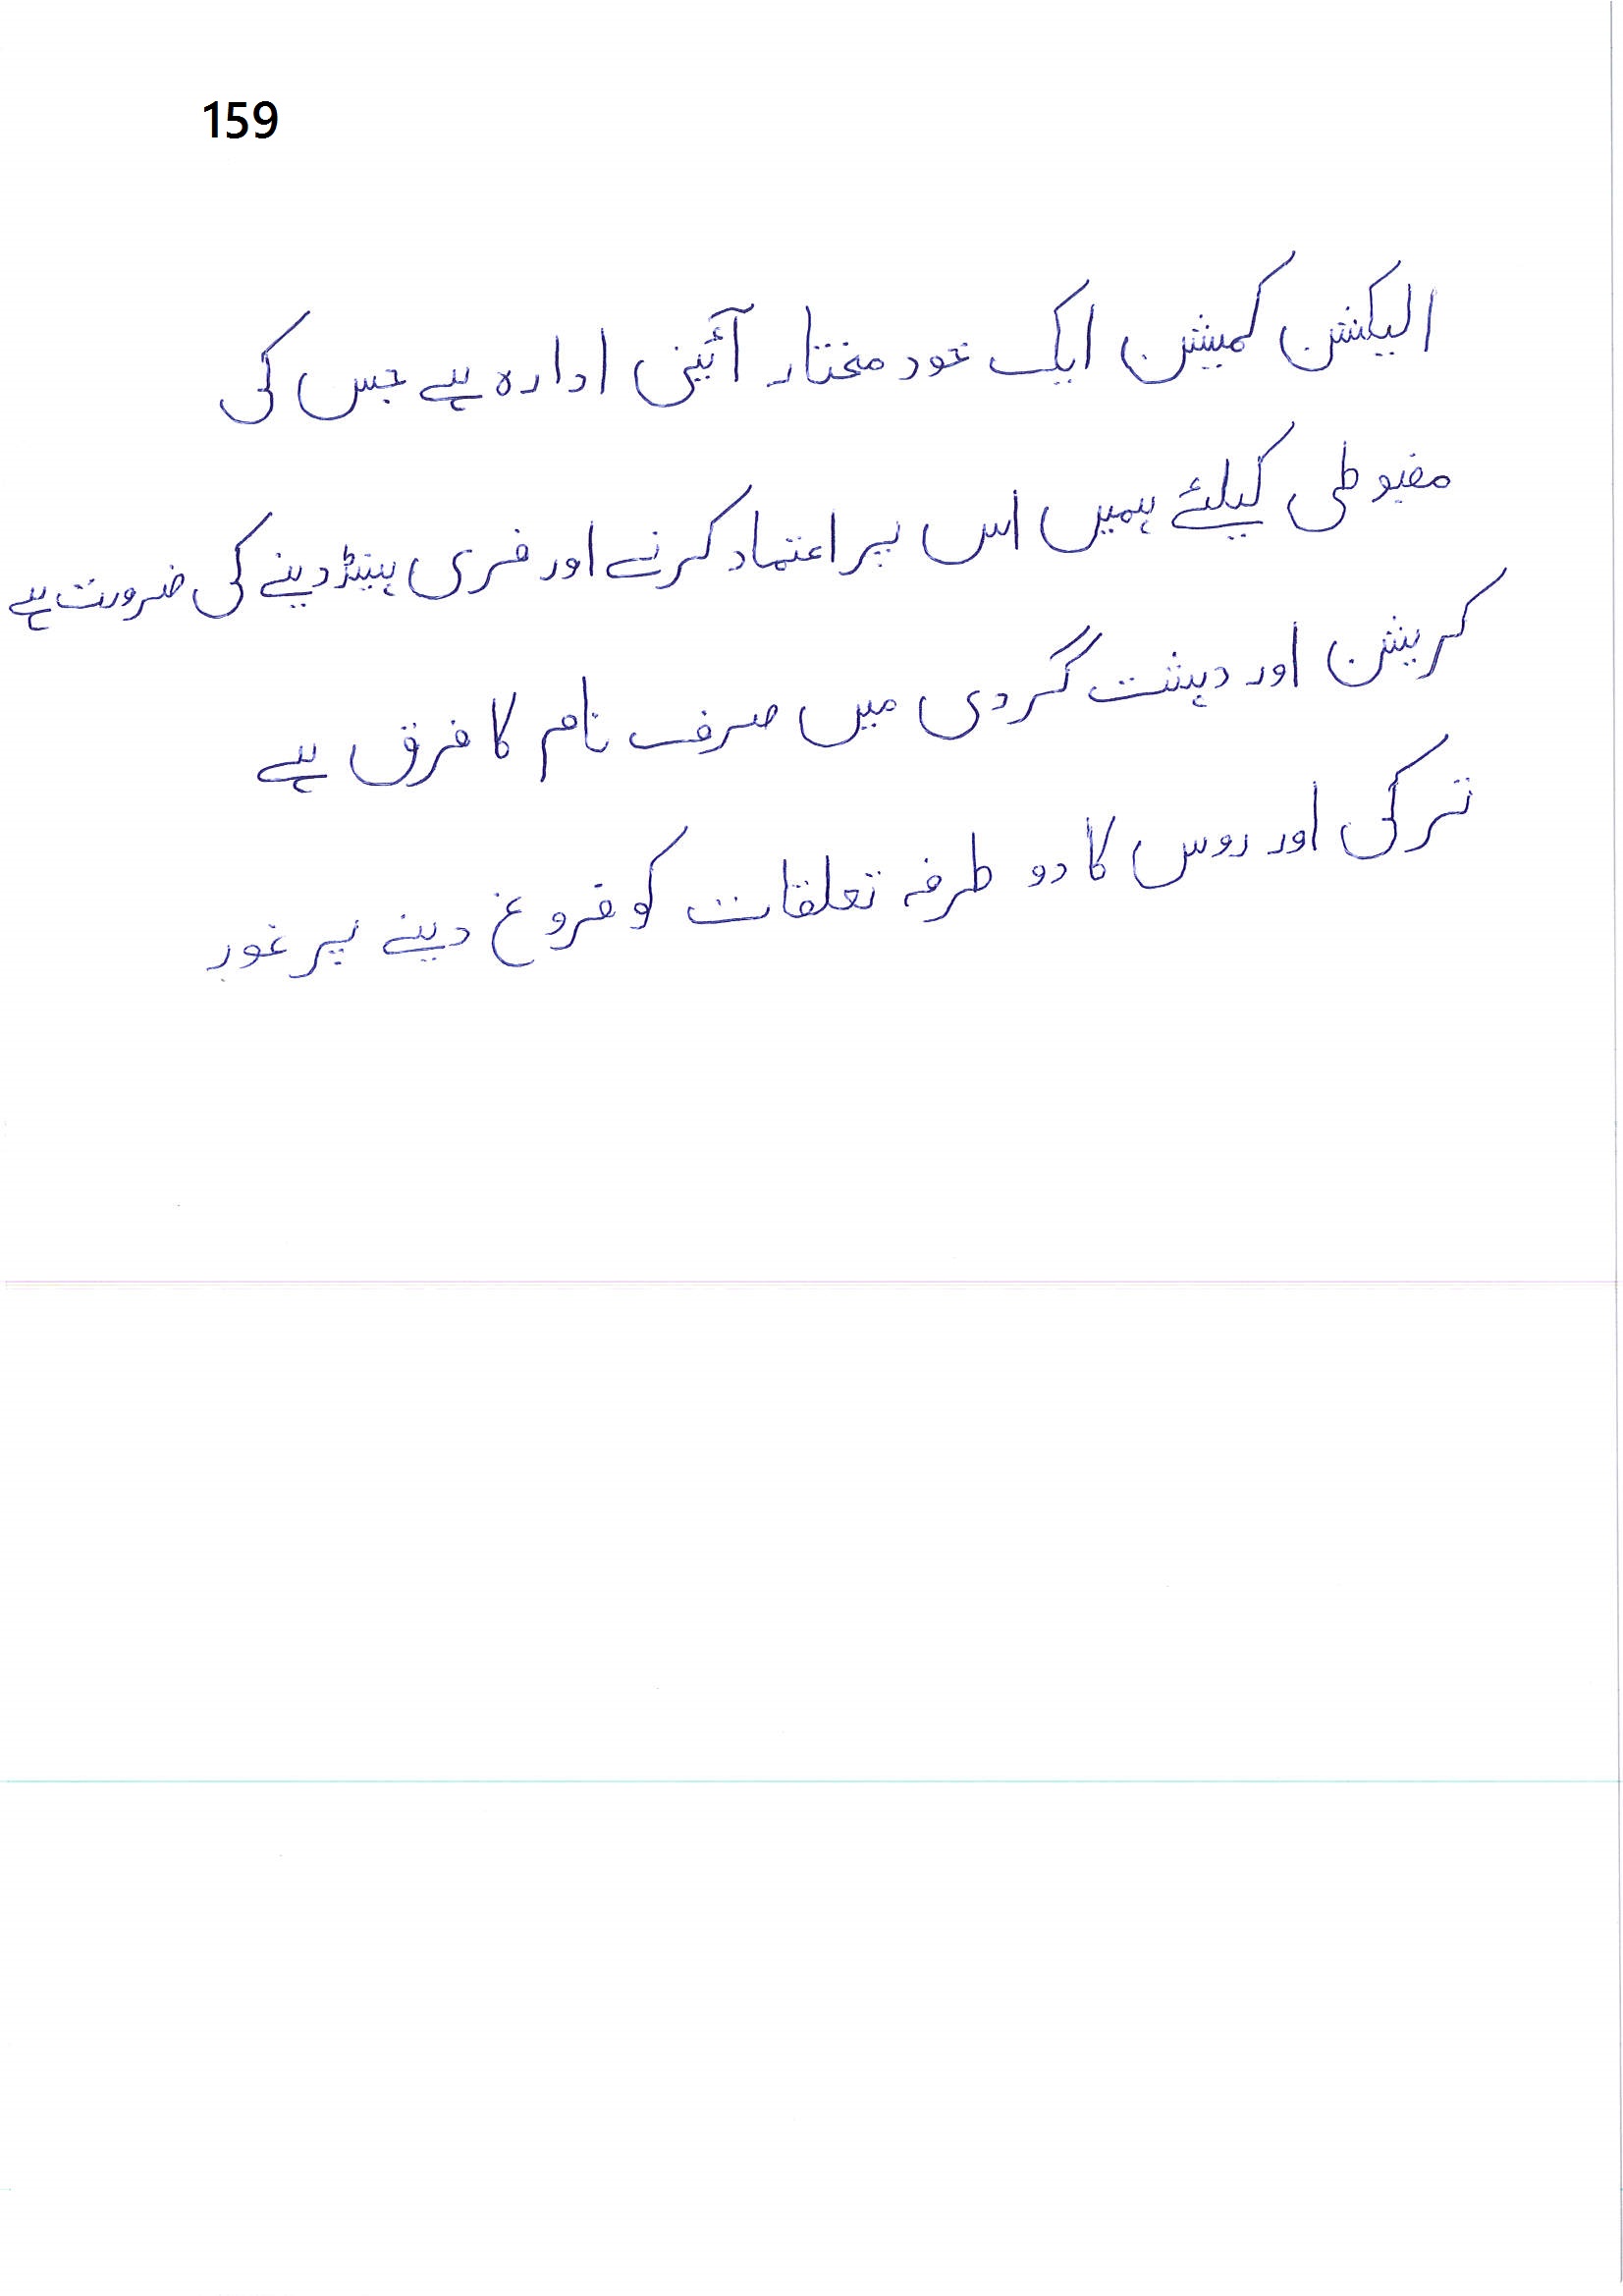 159
الیکشن کمیشن ایک خود مختار آئینی ادارہ ہے جس کی
مضبوطی کیلئے ہمیں اس پر اعتماد کرنے اور فری ہینڈ دینے کی ضرورت ہے
کرپشن اور دہشت گردی میں صرف نام کا فرق ہے
ترکی اور روس کا دو طرفہ تعلقات کو فروغ دینے پر غور